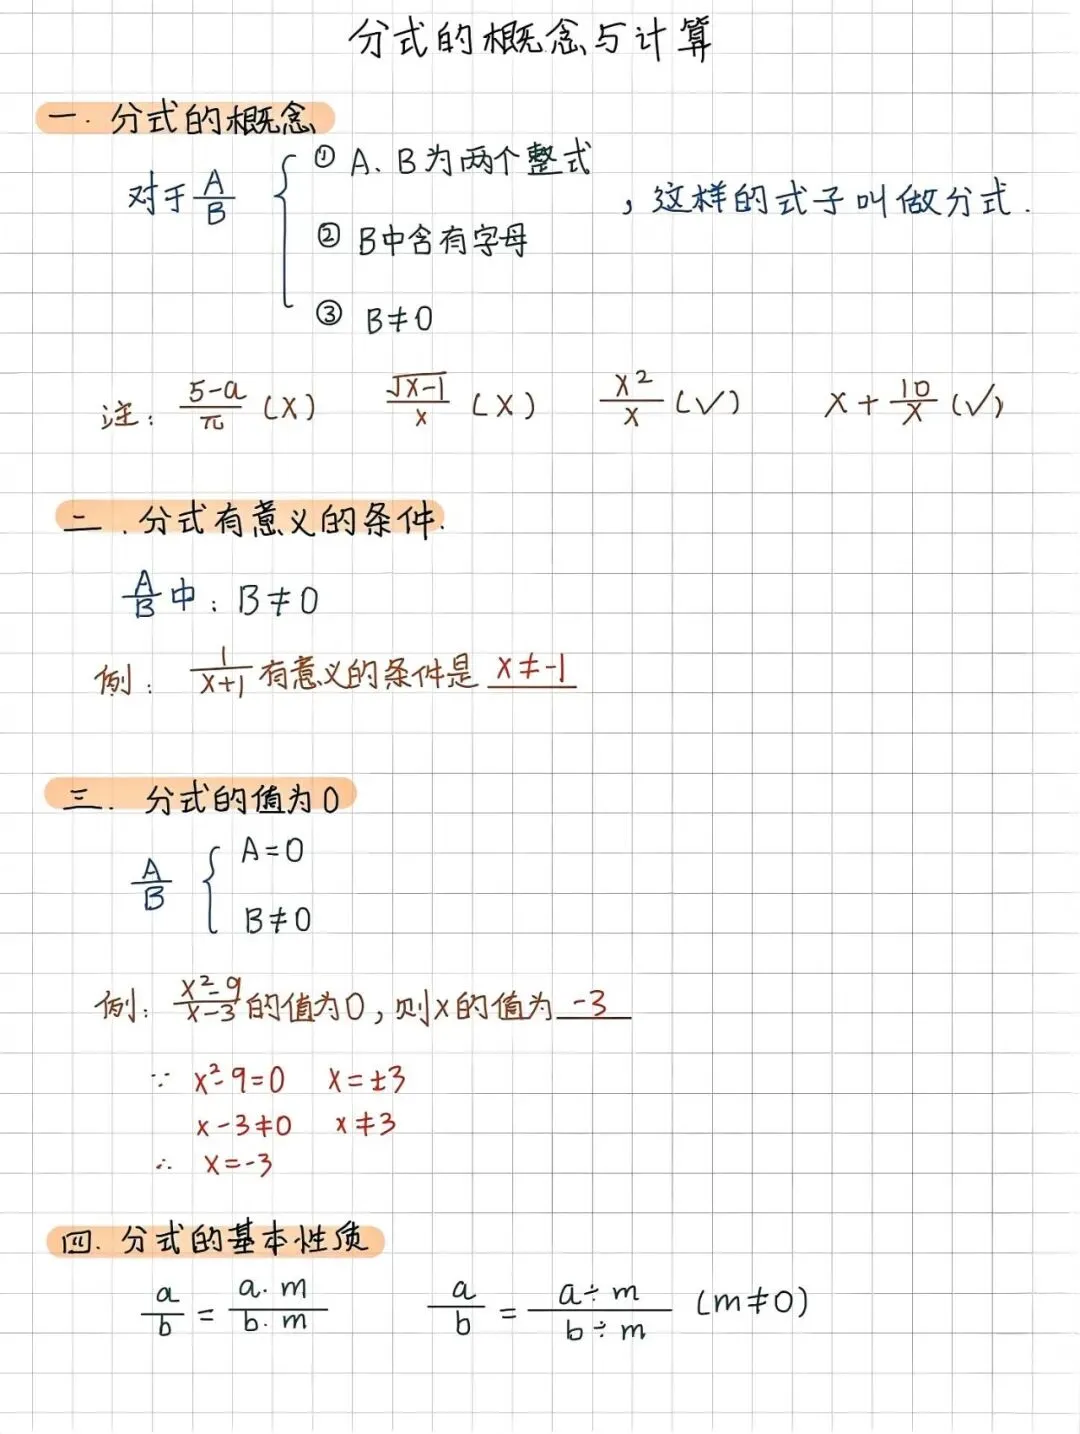 分式的概念与计算
一. 分式的概念
对于 A/B { ① A、B为两个整式
② B中含有字母
③ B≠0
，这样的式子叫做分式.
注: (5-a)/π (×) √(x-1)/x (×) x²/x (√) x + 10/x (√)
二. 分式有意义的条件.
A/B 中: B≠0
例: 1/(x+1) 有意义的条件是 x≠-1
三. 分式的值为0
A/B { A=0
B≠0
例: (x²-9)/(x-3) 的值为0, 则x的值为 -3
∵ x²-9=0 x=±3
x-3≠0 x≠3
∴ x=-3
四. 分式的基本性质
a/b = (a·m)/(b·m) a/b = (a÷m)/(b÷m) (m≠0)